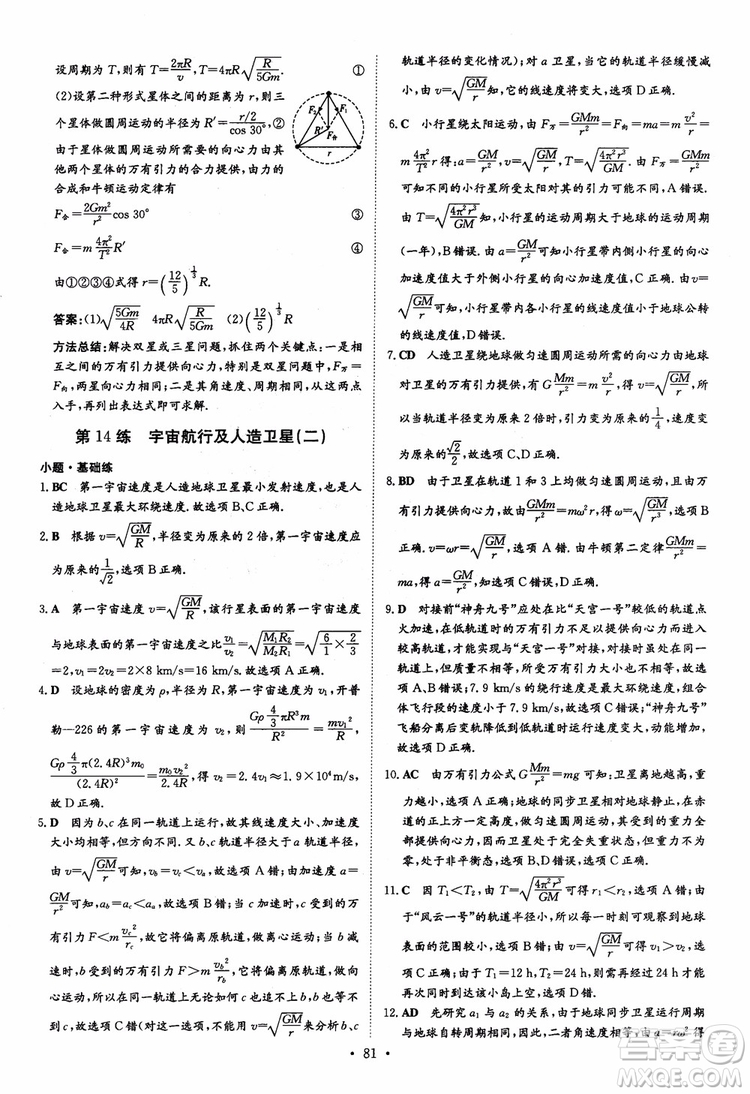 设周期为 T,则有 T=2πR/v,T=4πR√(R/5Gm). ①
(2)设第二种形式星体之间的距离为 r,则三
个星体做圆周运动的半径 R′=(r/2)/cos 30°,②
由于星体做圆周运动的向心力由其
他两个星体的万有引力的合力提供,由力的
合成和牛顿运动定律有
F合=(2Gm²/r²)cos 30° ③
F合=m(4π²/T²)R′ ④
由①②③④式得 r=(12/5)^(1/3)R
答案:(1)√(5Gm/4R) 4πR√(R/5Gm) (2)(12/5)^(1/3)R
方法总结:解决双星或三星问题,抓住两个关键点:一是相
互之间的万有引力提供向心力,特别是双星问题中,F万=
F向,两星向心力相同;二是其角速度、周期相同,从这两点
入手,再列出表达式即可求解.
第 14 练 宇宙航行及人造卫星(二)
小题·基础练
1. BC 第一宇宙速度是人造地球卫星最小发射速度,也是人
造地球卫星最大环绕速度.故选项 BC 正确.
2. B 根据 v=√(GM/R),半径变为原来的 2 倍,速度变为
原来的 1/√2,选项 B 正确.
3. A 第一宇宙速度 v=√(GM/R),该行星表面的第一宇宙速度
与地球的第一宇宙速度之比为 v₁/v₂=√(M₁R₂/M₂R₁)=√(6/1×2/3)
=2,v₁=2v₂=2×8 km/s=16 km/s.故选项 A 正确.
4. D 设地球的密度为 ρ,半径为 R,第一宇宙速度为 v₁,开普
勒—226 的第一宇宙速度为 v₂,则 Gρ(4/3)πR³m/R²=mv₁²/R,
Gρ(4/3)π(2.4R)³m₀/(2.4R)²=m₀v₂²/2.4R,得 v₂=2.4v₁≈1.9×10⁴ m/s,
故 D 正确.
5. D 因为 b、c 在同一轨道上运行,故其线速度大小、加速度
大小均相等,但方向不同.又 b、c 轨道半径大于 a 轨道半
径,由 v=√(GM/r)知,vb=vc<va,故 A 错;由加速度 a=
GM/r²可知,ab=ac<aa,故 B 错;当 c 加速时,c 受到的万
有引力 F<m vc²/rc,故它将偏离原轨道,做离心运动;当 b 减
速时,b 受到的万有引力 F>m vb²/rb,故它将偏离原轨道,做近
心运动.所以无论如何 c 也追不上 b,b 也等不到 c,故 C 错
(对这一选项,不能用 v=√(GM/r)来分析 b、c
轨道半径的变化情况);对 a 卫星,当它的轨道半径缓慢减
小时,由 v=√(GM/r)知,它的线速度应增大,故选项 D 正确.
6. C 小行星绕太阳运动,由 F万=GMm/r²=F向=ma=m v²/r
=m(4π²/T²)r 得:a=GM/r²,v=√(GM/r),T=√(4π²r³/GM).因各小行星的
轨道半径、质量均不同,故小行星所受太阳的引力不同,A 错误;
由 T=√(4π²r³/GM)知,小行星的运动周期大于地球的运动周期
(一年),B 错误;由 a=GM/r²可知小行星带内侧小行星的向心
加速度值大于外侧小行星的向心加速度值,C 正确;由
v=√(GM/r)可知,小行星带内各小行星的线速度值小于地球公转
的线速度值,D 错误.
7. CD 人造卫星绕地球做匀速圆周运动的向心力由地球
对卫星的万有引力提供,有 G Mm/r²=m v²/r,得 v=√(GM/r),所
以当轨道半径变为原来 2 倍时,引力变为原来的1/4,速度变
为原来的√2/2.故选项 CD 正确.
8. BD 由于卫星在轨道 1 和 3 上均做匀速圆周运动,由万
有引力提供向心力,则 GMm/r²=mω²r,得 ω=√(GM/r³),又
v=ωr=√(GM/r),选项 A 错误.由牛顿第二定律GMm/r²=
ma,得 a=GM/r²,选项 C 错误,选项 BD 正确.
9. D 对接前“神舟九号”应处在比“天宫一号”较低的轨道点
火加速,在低轨道时的万有引力不足以提供向心力,从而向
较高轨道运动,才能实现与“天宫一号”的对接,A 错误.同
理,B 错误;7.9 km/s 的绕行速度是最大环绕速度,二者轨
道的运行速度小于 7.9 km/s,C 错误;“神舟九号”
飞船分离后变轨降低到低轨道时运行速度增大,动能增大,
故 D 正确.
10. AC 由万有引力公式 G Mm/r²=mg 可知:卫星离地越高,重
力越小,选项 A 正确;地球的同步卫星相对地球静止,在赤
道的上空做匀速圆周运动,选项 B 错误;卫星的重力全
部提供向心力,因而卫星处于完全失重状态,但合力不为
零,并非平衡态,故选项 C 正确,选项 D 错误.
11. C 因 T₁<T₂,由 T=√(4π²r³/GM)可得 r₁<r₂,A 错;由于
“风云一号”的轨道半径小,所以每一时刻可观察到地球
表面的范围较小,B 错;由 v=√(GM/r)可得 v₁>v₂,C 正
确;由于 T₁=12 h,T₂=24 h,则需再经过 24 h 才能再次
同时到达该小岛上空,D 错.
12. AD 先研究 a₁ 与 a₂ 的关系,由于地球同步卫星运行周期
与地球自转周期相同,因此,二者角速度相等,由 a=rω² 得
· 81 ·